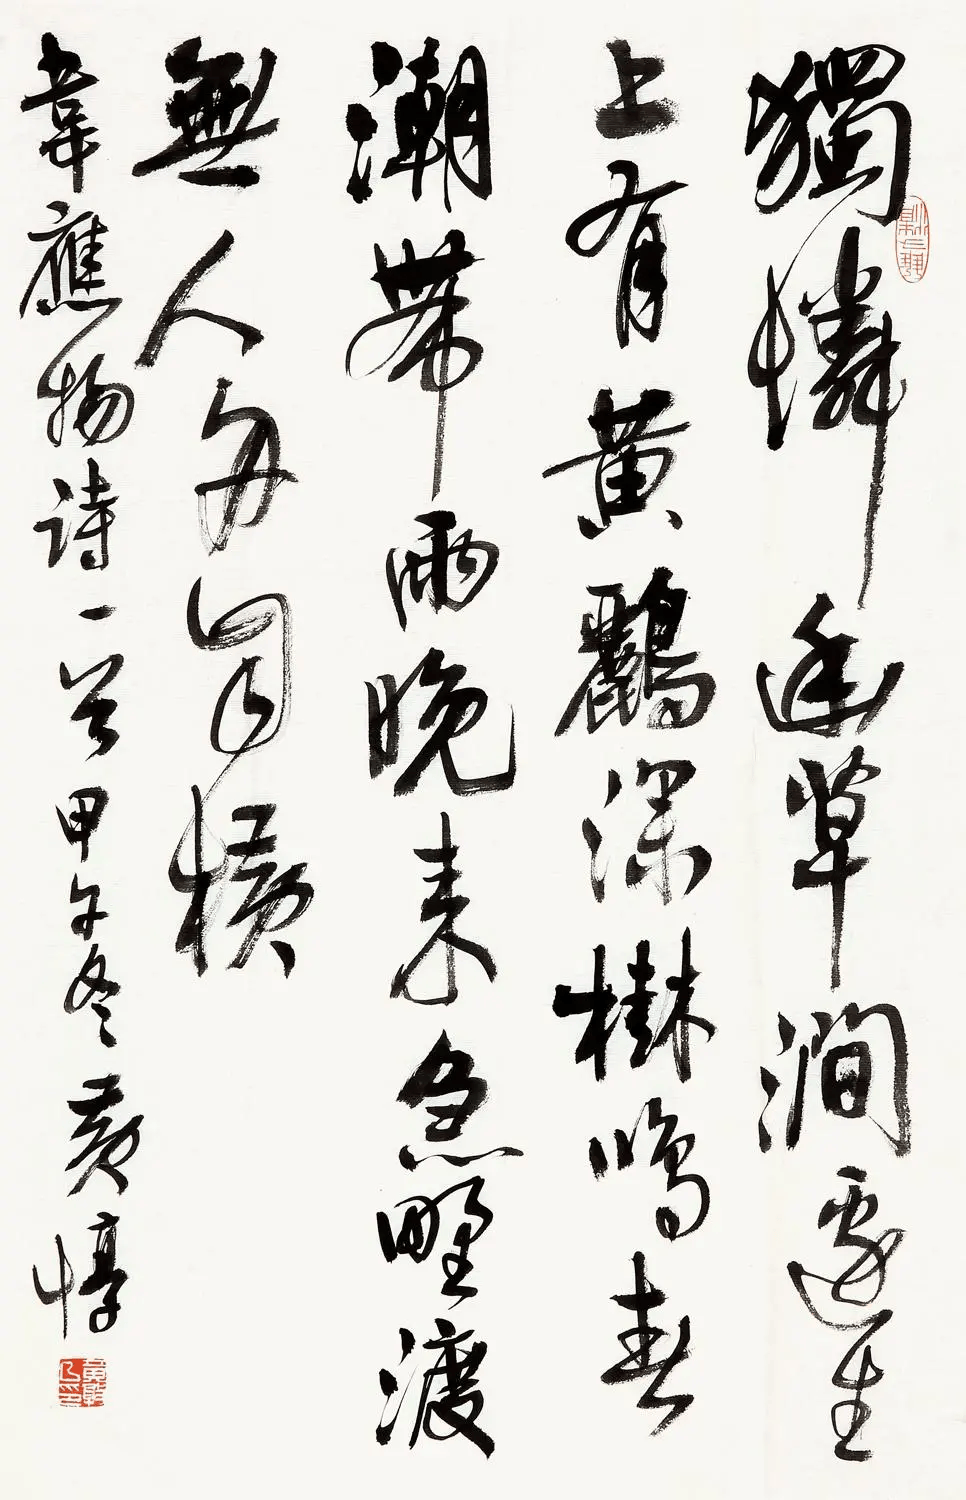 獨憐幽草澗邊生
上有黃鸝深樹鳴春
潮帶雨晚來急野渡
無人舟自橫
韋應物詩一首甲午冬黃惇